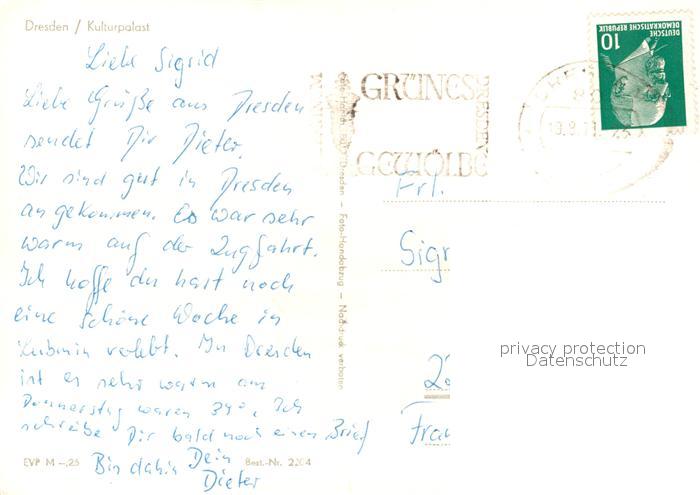 Dresden / Kulturpalast
Liebe Sigrid
Liebe Grüße aus Dresden
sendet Dir Dieter.
Wir sind gut in Dresden
angekommen. Es war sehr
warm auf der Zugfahrt.
Ich hoffe du hast noch
eine schöne Woche in
Lubmin verlebt. In Dresden
ist es sehr warm am
Donnerstag waren 34°. Ich
schreibe Dir bald noch einen Brief
Bis dahin Dein
Dieter
EVP M -,25 Best.-Nr. 2204
Dresden – Foto-Handabzug – Nachdruck verboten
GRÜNES
GEWÖLBE
DRESDEN
DEUTSCHE
DEMOKRATISCHE REPUBLIK
10
Frl.
Sigr
Fran
privacy protection
Datenschutz